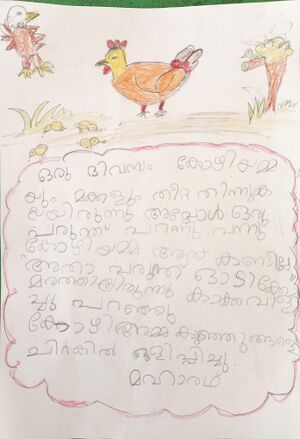 ഒരു ദിവസം കോഴിയമ്മ
യും മക്കളും തീറ്റ തിന്നുക
യായിരുന്നു അപ്പോൾ ഒരു
പരുന്ത് പറന്നു വന്നു
കോഴിയമ്മ അത് കണ്ടില്ല
"അതാ പരുന്ത് ഓടിക്കോ
മരത്തിലിരുന്ന കാക്ക വിളി
ച്ചു പറഞ്ഞു
കോഴിഅമ്മ കുഞ്ഞുങ്ങളെ
ചിറകിൽ ഒളിപ്പിച്ചു.
മഹാരഥ്